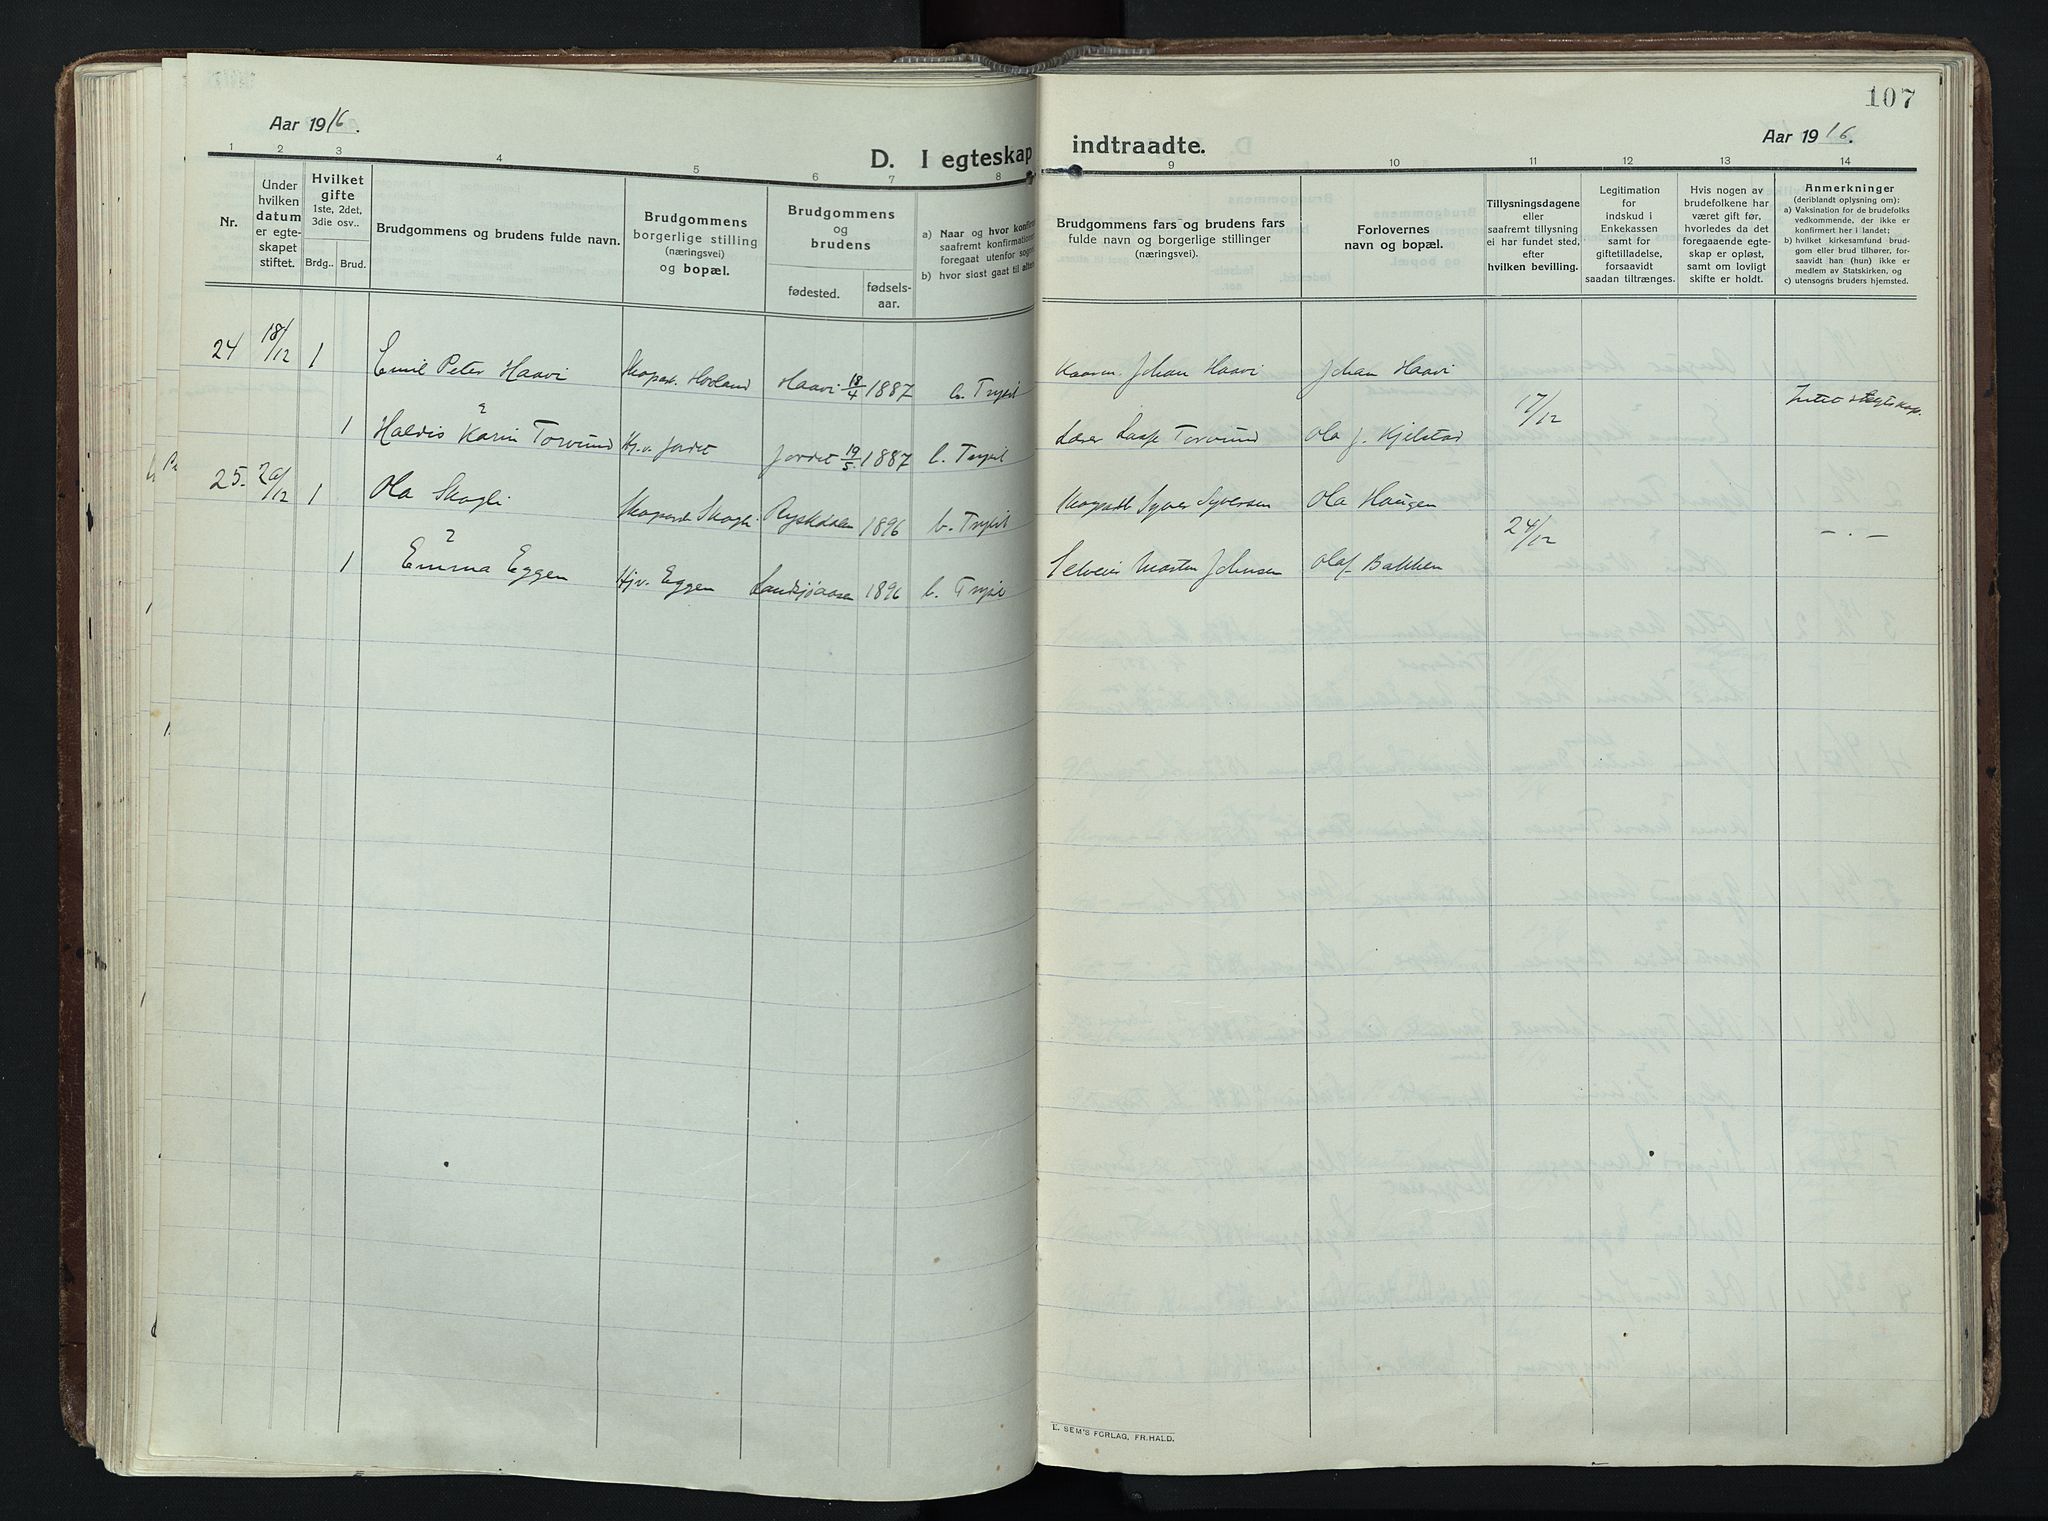 107
Aar 1916.
Aar 1916.
D. I egteskap indtraadte.
1 2 3 4 5 6 7 8 9 10 11 12 13 14
Nr.
Under
hvilken
datum
er egte-
skapet
stiftet.
Hvilket
gifte
1ste, 2det,
3die osv..
Brdg.. Brud.
Brudgommens og brudens fulde navn.
Brudgommens
borgerlige stilling
(næringsvei)
og bopæl.
Brudgommens
og
brudens
fødested.
fødsels-
aar.
a) Naar og hvor konfir
saafremt konfirmation
foregaat utenfor sogne
b) hvor sidst gaat til alters
Brudgommens fars og brudens fars
fulde navn og borgerlige stillinger
(næringsvei).
Forlovernes
navn og bopæl.
Tillysningsdagene
eller
saafremt tillysning
ei har fundet sted,
efter
hvilken bevilling.
Legitimation
for
indskud i
Enkekassen
samt for
giftetilladelse,
forsaavidt
saadan tiltrænges.
Hvis nogen av
brudefolkene har
været gift før,
hvorledes da det
foregaaende egte-
skap er opløst,
samt om lovligt
skifte er holdt.
Anmerkninger
(deriblandt oplysning om):
a) Vaksination for de brudefolks
vedkommende, der ikke er
konfirmert her i landet;
b) hvilket kirkesamfund brud-
gom eller brud tilhører, for-
saavidt han (hun) ikke er
medlem av Statskirken, og
c) utensogns bruders hjemsted.
24 18/12 1 Emil Peter Haavi Skoparb. Hovland Haavi 18/4 1887 b. Trysil Johan Haavi Johan Haavi
17/12
1 Haldis Karin Torvund Hj.v. Jordet Jordet 19/5 1887 b. Trysil Lærer Torvund Ola J. Kjelstad
25. 26/12 1 Ola Skogli Skoparb. Skogli Ryskdalen 1896 b. Trysil Skoparb. Syver Syversen Ola Haugen
24/12 – . –
1 Emma Eggen Hjv. Eggen Landsjøaasen 1896 b. Trysil Selveier Morten Johnsen Olaf Bakken
E. SEM'S FORLAG, FR.HALD.